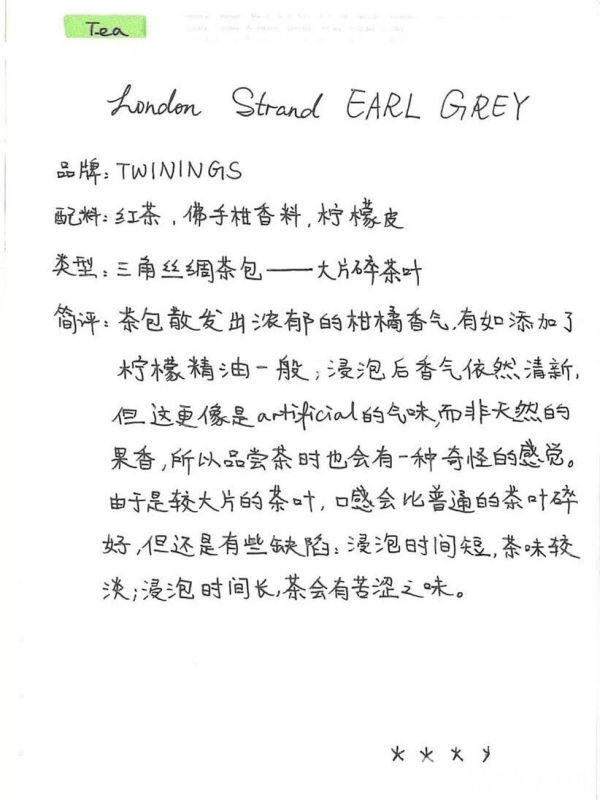 Tea
London Strand EARL GREY
品牌：TWININGS
配料：红茶，佛手柑香料，柠檬皮
类型：三角丝绸茶包——大片碎茶叶
简评：茶包散发出浓郁的柑橘香气，有如添加了
柠檬精油一般；浸泡后香气依然清新，
但这更像是artificial的气味，而非天然的
果香，所以品尝茶时也会有一种奇怪的感觉。
由于是较大片的茶叶，口感会比普通的茶叶碎
好，但还是有些缺陷：浸泡时间短，茶味较
淡；浸泡时间长，茶会有苦涩之味。